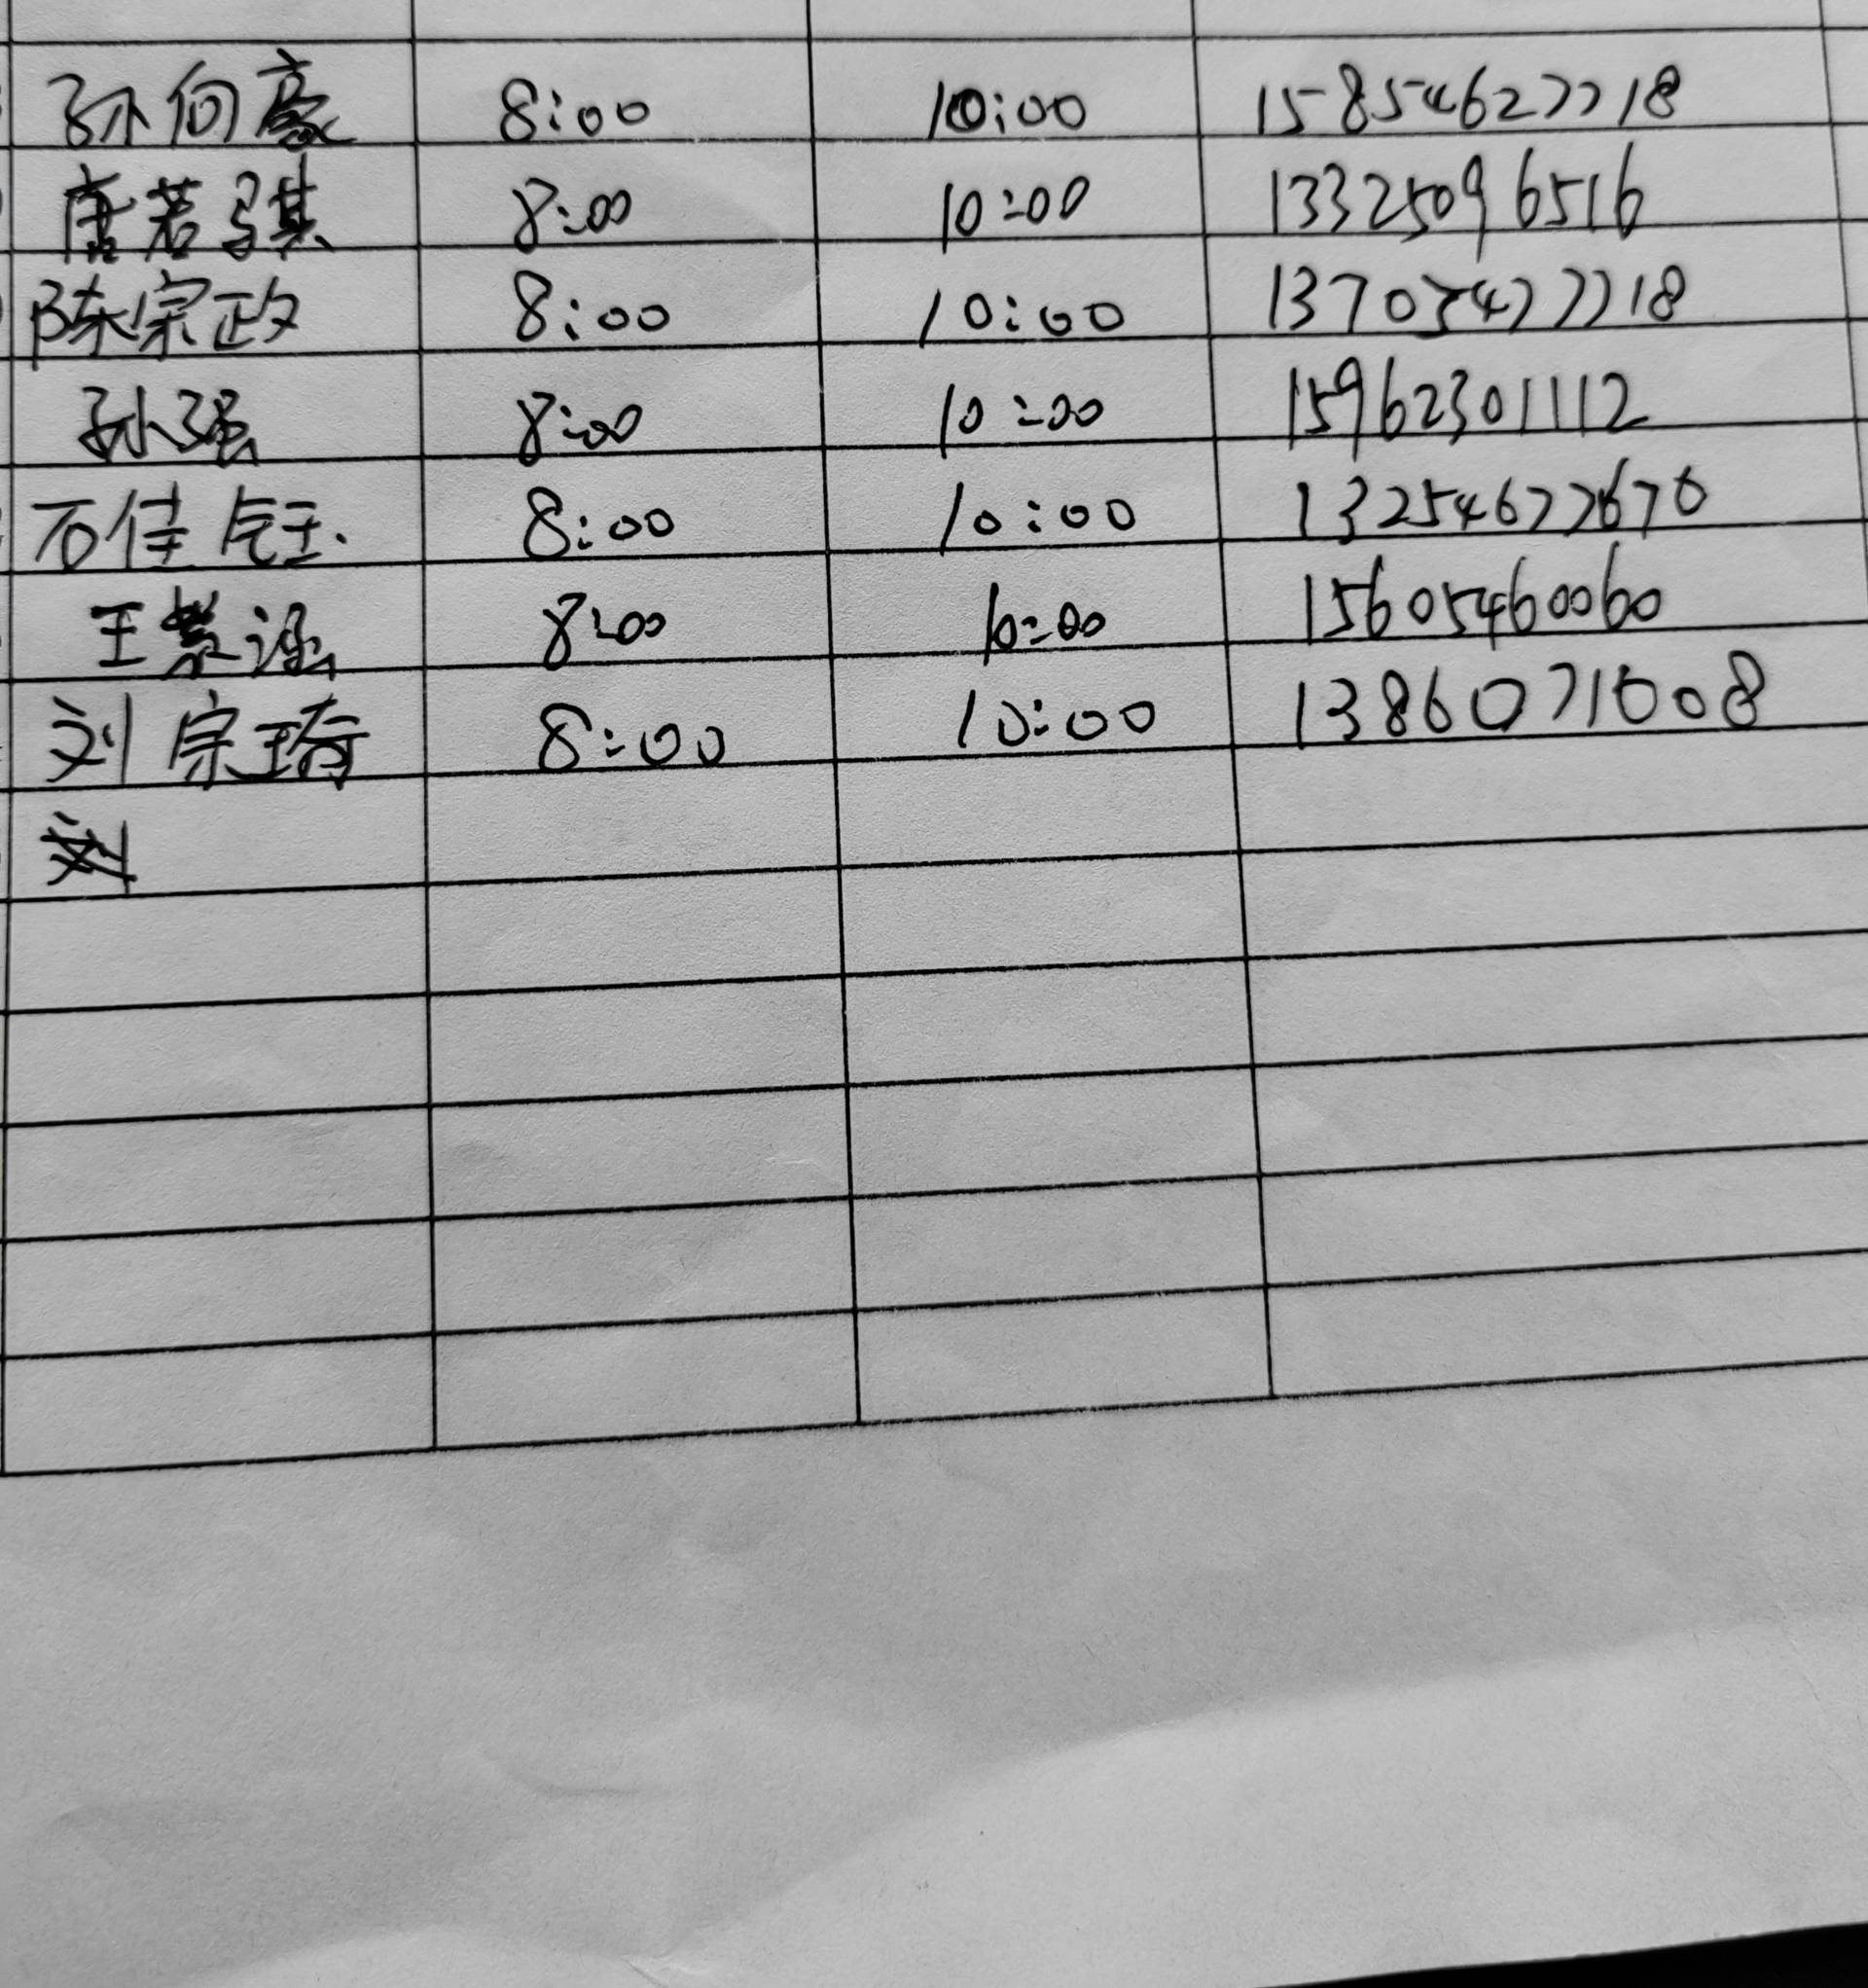 孙向豪 8:00 10:00 15854627718
唐若骐 8:00 10:00 13325096516
陈宗政 8:00 10:00 13705477718
孙强 8:00 10:00 15962301112
石佳钰 8:00 10:00 13254677670
王 涵 8:00 10:00 15605460060
刘宗琦 8:00 10:00 13860771008
刘